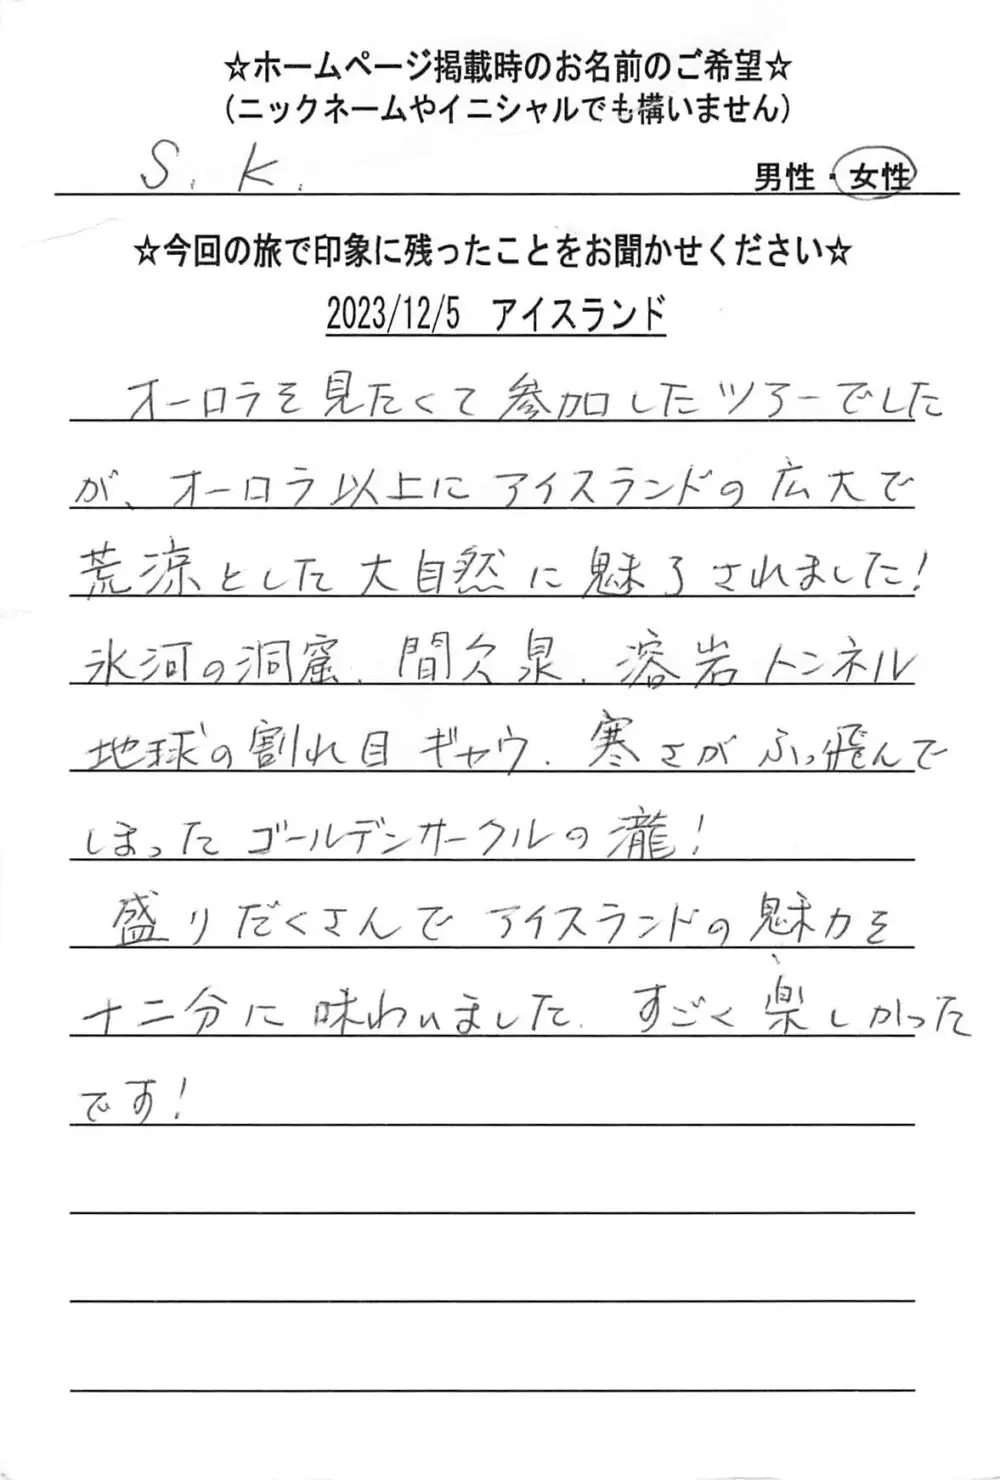 ☆ホームページ掲載時のお名前のご希望☆
(ニックネームやイニシャルでも構いません)
S. K. 男性・女性
☆今回の旅で印象に残ったことをお聞かせください☆
2023/12/5 アイスランド
オーロラを見たくて参加したツアーでした
が、オーロラ以上にアイスランドの広大で
荒涼とした大自然に魅了されました!
氷河の洞窟、間欠泉、溶岩トンネル
地球の割れ目ギャウ、寒さがふっ飛んで
しまったゴールデンサークルの瀧!
盛りだくさんでアイスランドの魅力を
十二分に味わいました。すごく楽しかった
です!